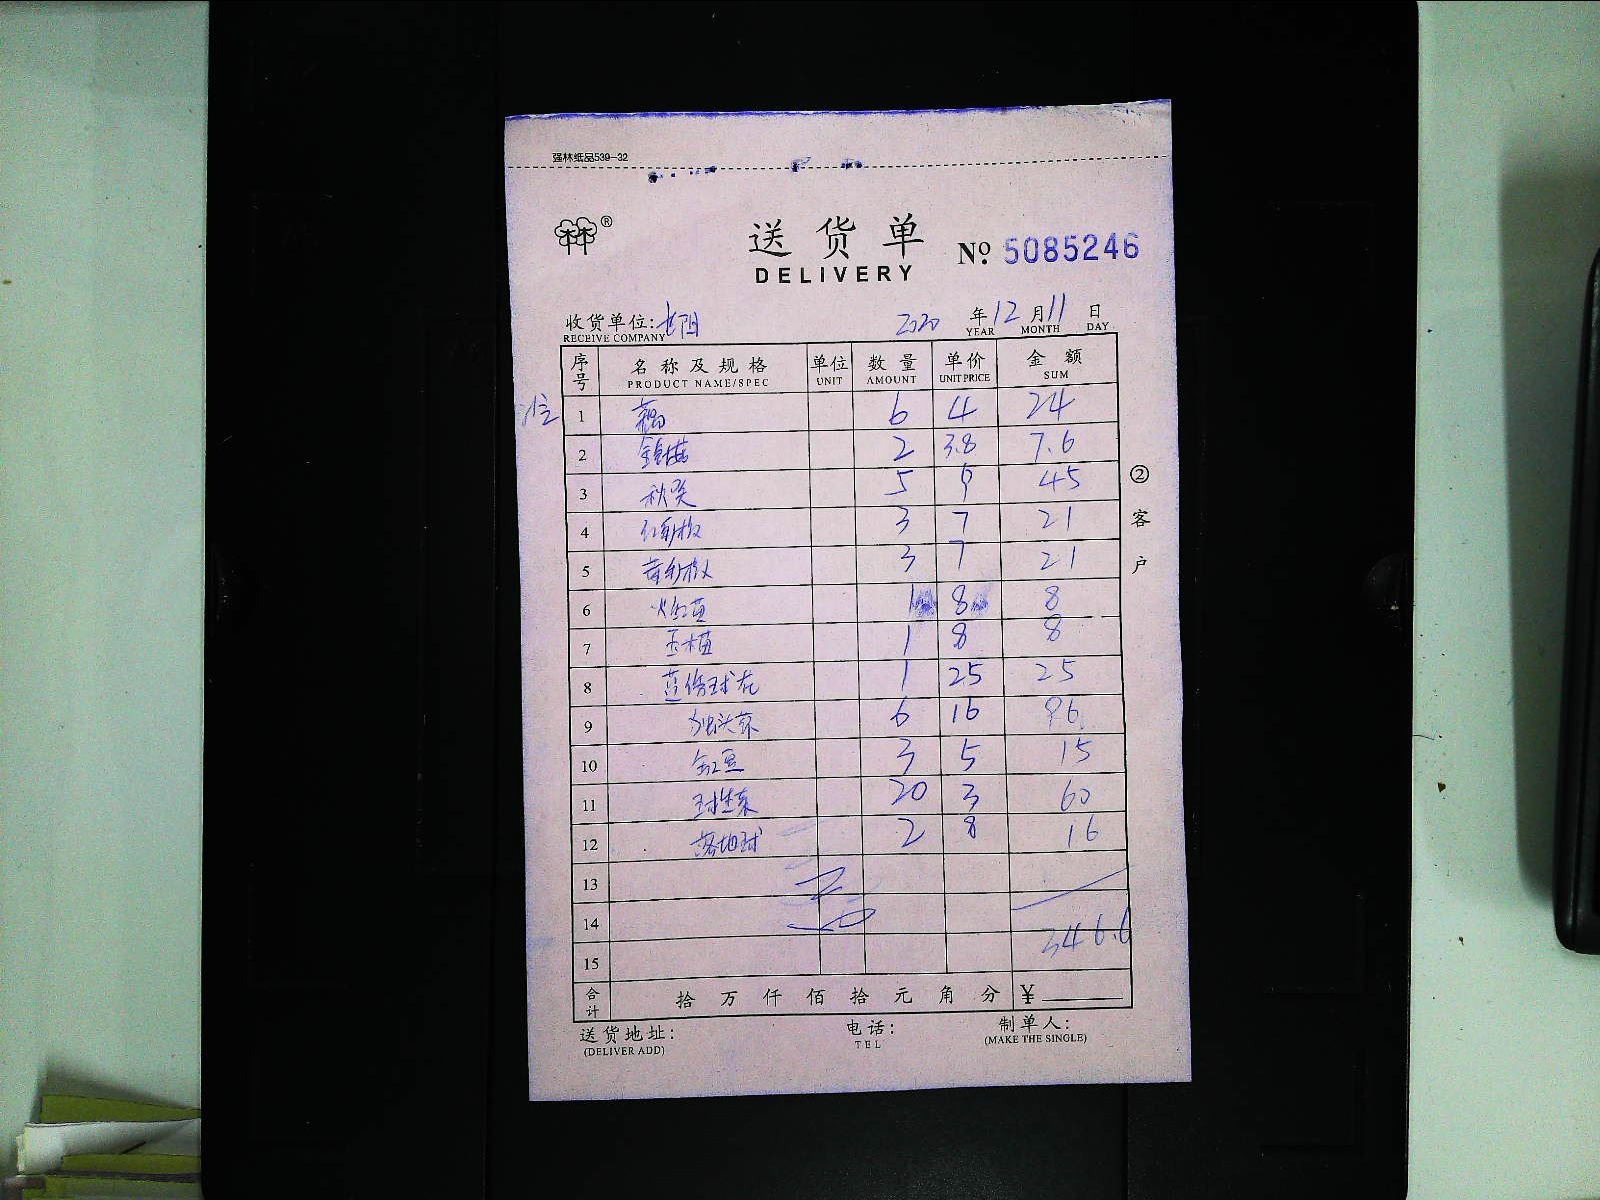 强林纸品539-32
林林®
送货单
DELIVERY
Nº 5085246
收货单位: 长阳 2020 年 12 月 11 日
RECEIVE COMPANY YEAR MONTH DAY
序号 名称及规格 单位 数量 单价 金额
PRODUCT NAME/SPEC UNIT AMOUNT UNIT PRICE SUM
1 藕 6 4 24
2 金针菇 2 3.8 7.6
3 秋葵 5 9 45
4 红彩椒 3 7 21
5 黄彩椒 3 7 21
6 火红苗 1 8 8
7 玉米苗 1 8 8
8 25 1 25
9 独头蒜 6 16 96
10 3 5 15
11 球生菜 20 3 60
12 2 8 16
13
14
15 346.6
合计 拾 万 仟 佰 拾 元 角 分 ¥
送货地址: 电话: 制单人:
(DELIVER ADD) TEL (MAKE THE SINGLE)
②客户